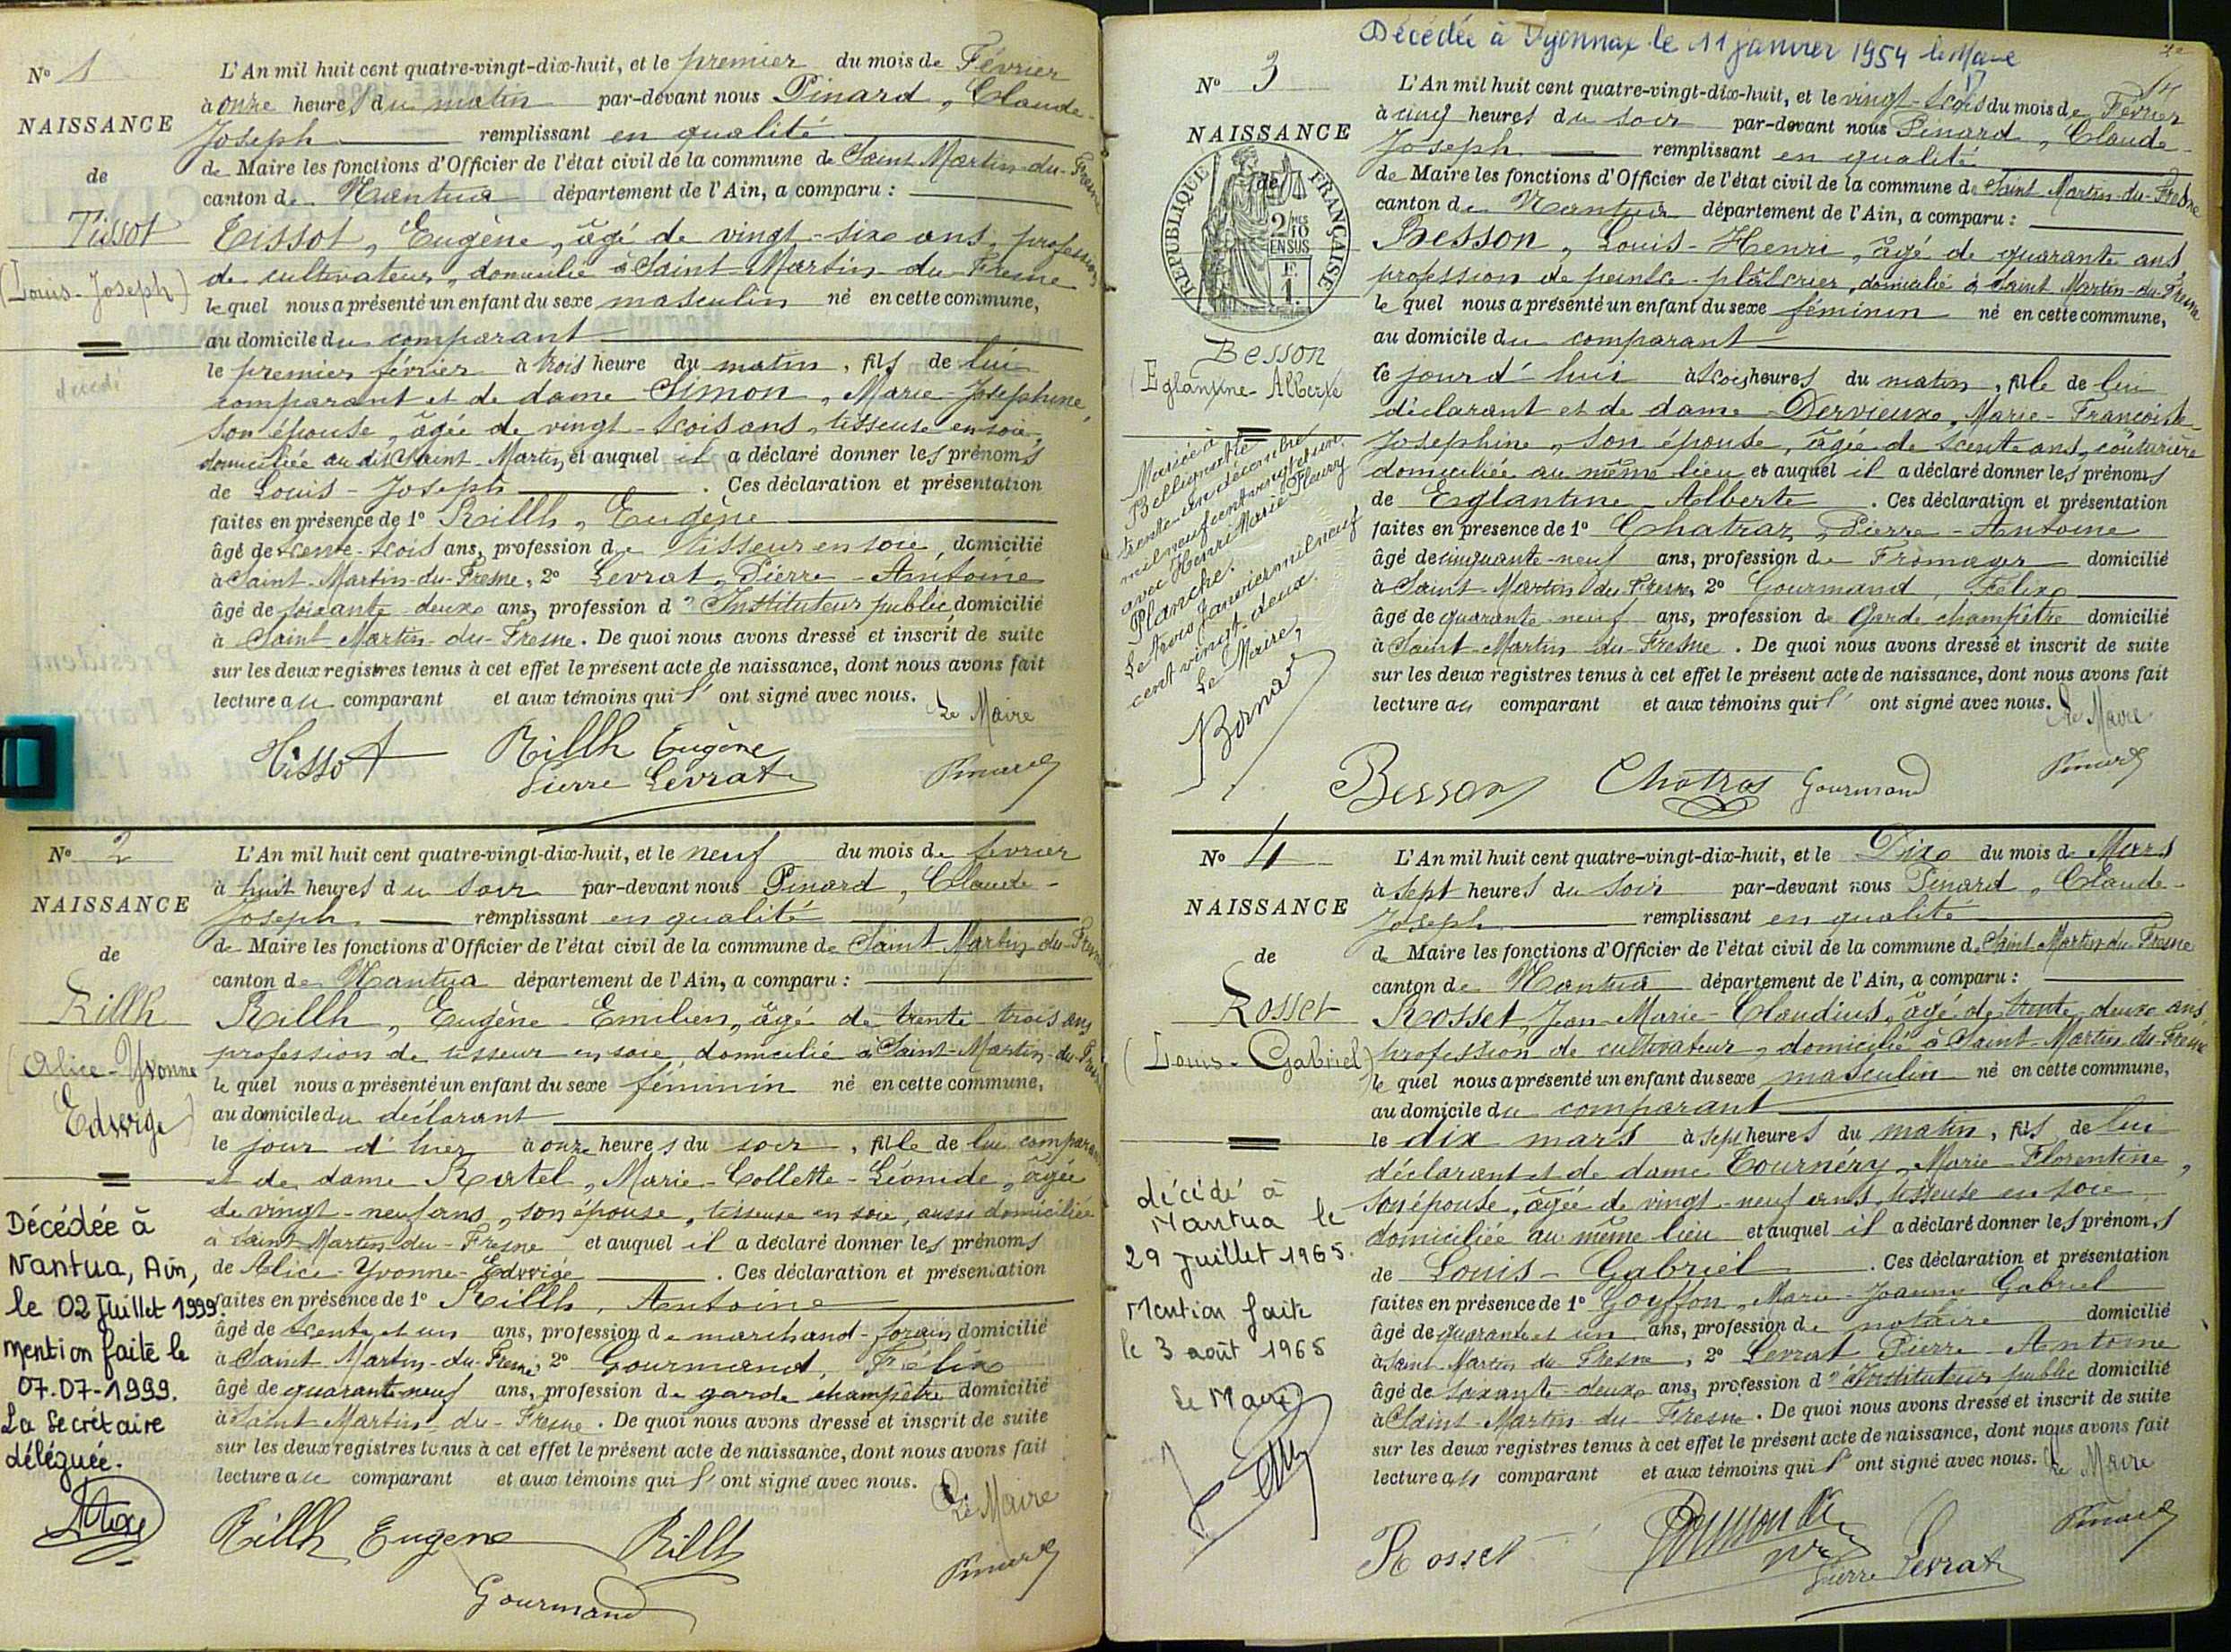 N° 1
NAISSANCE
de
Tissot
(Louis-Joseph)
décédé
L'An mil huit cent quatre-vingt-dix-huit, et le premier du mois de Février
à onze heures du matin par-devant nous Pinard, Claude-
Joseph remplissant en qualité
de Maire les fonctions d'Officier de l'état civil de la commune de Saint Martin-du-Fresne
canton de Nantua département de l'Ain, a comparu :
Tissot, Eugène, âgé de vingt-six ans, profession
de cultivateur, domicilié à Saint-Martin-du-Fresne
le quel nous a présenté un enfant du sexe masculin né en cette commune,
au domicile du comparant
le premier février à trois heure du matin, fils de lui
comparant et de dame Simon, Marie-Joséphine,
son épouse, âgée de vingt-trois ans, tisseuse en soie,
domiciliée au dit Saint-Martin, et auquel il a déclaré donner les prénoms
de Louis-Joseph . Ces déclaration et présentation
faites en présence de 1° Rillh, Eugène
âgé de trente-trois ans, profession de tisseur en soie, domicilié
à Saint-Martin-du-Fresne, 2° Levrat, Pierre-Antoine
âgé de soixante-deux ans, profession d'Instituteur public domicilié
à Saint Martin-du-Fresne. De quoi nous avons dressé et inscrit de suite
sur les deux registres tenus à cet effet le présent acte de naissance, dont nous avons fait
lecture au comparant et aux témoins qui l'ont signé avec nous.
Le Maire
Tissot Rillh Eugène
Pierre Levrat Pinard
N° 2
NAISSANCE
de
Rillh
(Alice-Yvonne
Edwige)
Décédée à
Nantua, Ain,
le 02 Juillet 1999.
mention faite le
07-07-1999.
La Secrétaire
déléguée.
L'An mil huit cent quatre-vingt-dix-huit, et le neuf du mois de février
à huit heures du soir par-devant nous Pinard, Claude-
Joseph remplissant en qualité
de Maire les fonctions d'Officier de l'état civil de la commune de Saint Martin-du-Fresne
canton de Nantua département de l'Ain, a comparu :
Rillh, Eugène-Emilien, âgé de trente-trois ans
profession de tisseur en soie, domicilié à Saint-Martin-du-Fresne
le quel nous a présenté un enfant du sexe féminin né en cette commune,
au domicile du déclarant
le jour d'hier à onze heures du soir, fille de lui comparant
et de dame Ratel, Marie-Collette-Léonide, âgée
de vingt-neuf ans, son épouse, tisseuse en soie, aussi domiciliée
à Saint-Martin-du-Fresne et auquel il a déclaré donner les prénoms
de Alice-Yvonne-Edwige . Ces déclaration et présentation
faites en présence de 1° Rillh, Antoine
âgé de trente et un ans, profession de marchand-forain domicilié
à Saint Martin-du-Fresne, 2° Gourmand, Félix
âgé de quarante-neuf ans, profession de garde champêtre domicilié
à Saint Martin-du-Fresne. De quoi nous avons dressé et inscrit de suite
sur les deux registres tenus à cet effet le présent acte de naissance, dont nous avons fait
lecture au comparant et aux témoins qui l'ont signé avec nous.
Le Maire
Rillh Eugene Rillh Pinard
Gourmand
Décédée à Oyonnax le 11 janvier 1954 le Maire
N° 3
NAISSANCE
de
RÉPUBLIQUE FRANÇAISE
2/10 EN SUS
Besson
(Eglantine-Alberte
Mariée à
Bellignat le
trente un décembre
mil neuf cent vingt et un
avec Henri Marie Fleury
Planche.
Le trois Janvier mil neuf
cent vingt-deux.
Le Maire,
L'An mil huit cent quatre-vingt-dix-huit, et le vingt-trois du mois de Février
à cinq heures du soir par-devant nous Pinard, Claude-
Joseph remplissant en qualité
de Maire les fonctions d'Officier de l'état civil de la commune de Saint Martin-du-Fresne
canton de Nantua département de l'Ain, a comparu :
Besson, Louis-Henri, âgé de quarante ans
profession de peintre-plâtrier, domicilié à Saint Martin-du-Fresne
le quel nous a présenté un enfant du sexe féminin né en cette commune,
au domicile du comparant
ce jour d'hui à trois heures du matin, fille de lui
déclarant et de dame Dervieux, Marie-Françoise-
Joséphine, son épouse, âgée de trente ans, couturière
domiciliée au même lieu et auquel il a déclaré donner les prénoms
de Eglantine-Alberte . Ces déclaration et présentation
faites en presence de 1° Chatraz, Pierre-Antoine
âgé de cinquante-neuf ans, profession de Fromager domicilié
à Saint-Martin-du-Fresne, 2° Gourmand, Félix
âgé de quarante-neuf ans, profession de Garde champêtre domicilié
à Saint-Martin-du-Fresne. De quoi nous avons dressé et inscrit de suite
sur les deux registres tenus à cet effet le présent acte de naissance, dont nous avons fait
lecture au comparant et aux témoins qui l'ont signé avec nous.
Le Maire
Besson Chatras Gourmand Pinard
N° 4
NAISSANCE
de
Rosset
(Louis-Gabriel)
décédé à
Nantua le
29 Juillet 1965.
Mention faite
le 3 août 1965
Le Maire
L'An mil huit cent quatre-vingt-dix-huit, et le Dix du mois de Mars
à sept heures du soir par-devant nous Pinard, Claude-
Joseph remplissant en qualité
de Maire les fonctions d'Officier de l'état civil de la commune de Saint Martin-du-Fresne
canton de Nantua département de l'Ain, a comparu :
Rosset, Jean-Marie-Claudius, âgé de trente-deux ans
profession de cultivateur, domicilié à Saint-Martin-du-Fresne
le quel nous a présenté un enfant du sexe masculin né en cette commune,
au domicile du comparant
le dix mars à sept heures du matin, fils de lui
déclarant et de dame Tournéry, Marie-Florentine,
son épouse, âgée de vingt-neuf ans, tisseuse en soie
domiciliée au même lieu et auquel il a déclaré donner les prénoms
de Louis-Gabriel . Ces déclaration et présentation
faites en présence de 1° Goyffon, Marie-Joanny Gabriel
âgé de quarante et un ans, profession de notaire domicilié
à Saint-Martin-du-Fresne, 2° Levrat Pierre-Antoine
âgé de soixante-deux ans, profession d'Instituteur public domicilié
à Saint-Martin-du-Fresne. De quoi nous avons dressé et inscrit de suite
sur les deux registres tenus à cet effet le présent acte de naissance, dont nous avons fait
lecture au comparant et aux témoins qui l'ont signé avec nous.
Le Maire
Rosset Pierre Levrat Pinard